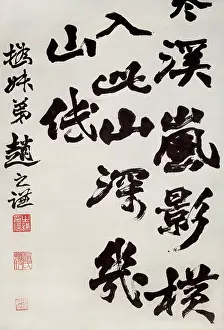 溪嵐影橫
入此山深幾
山
撝叔弟趙之謙